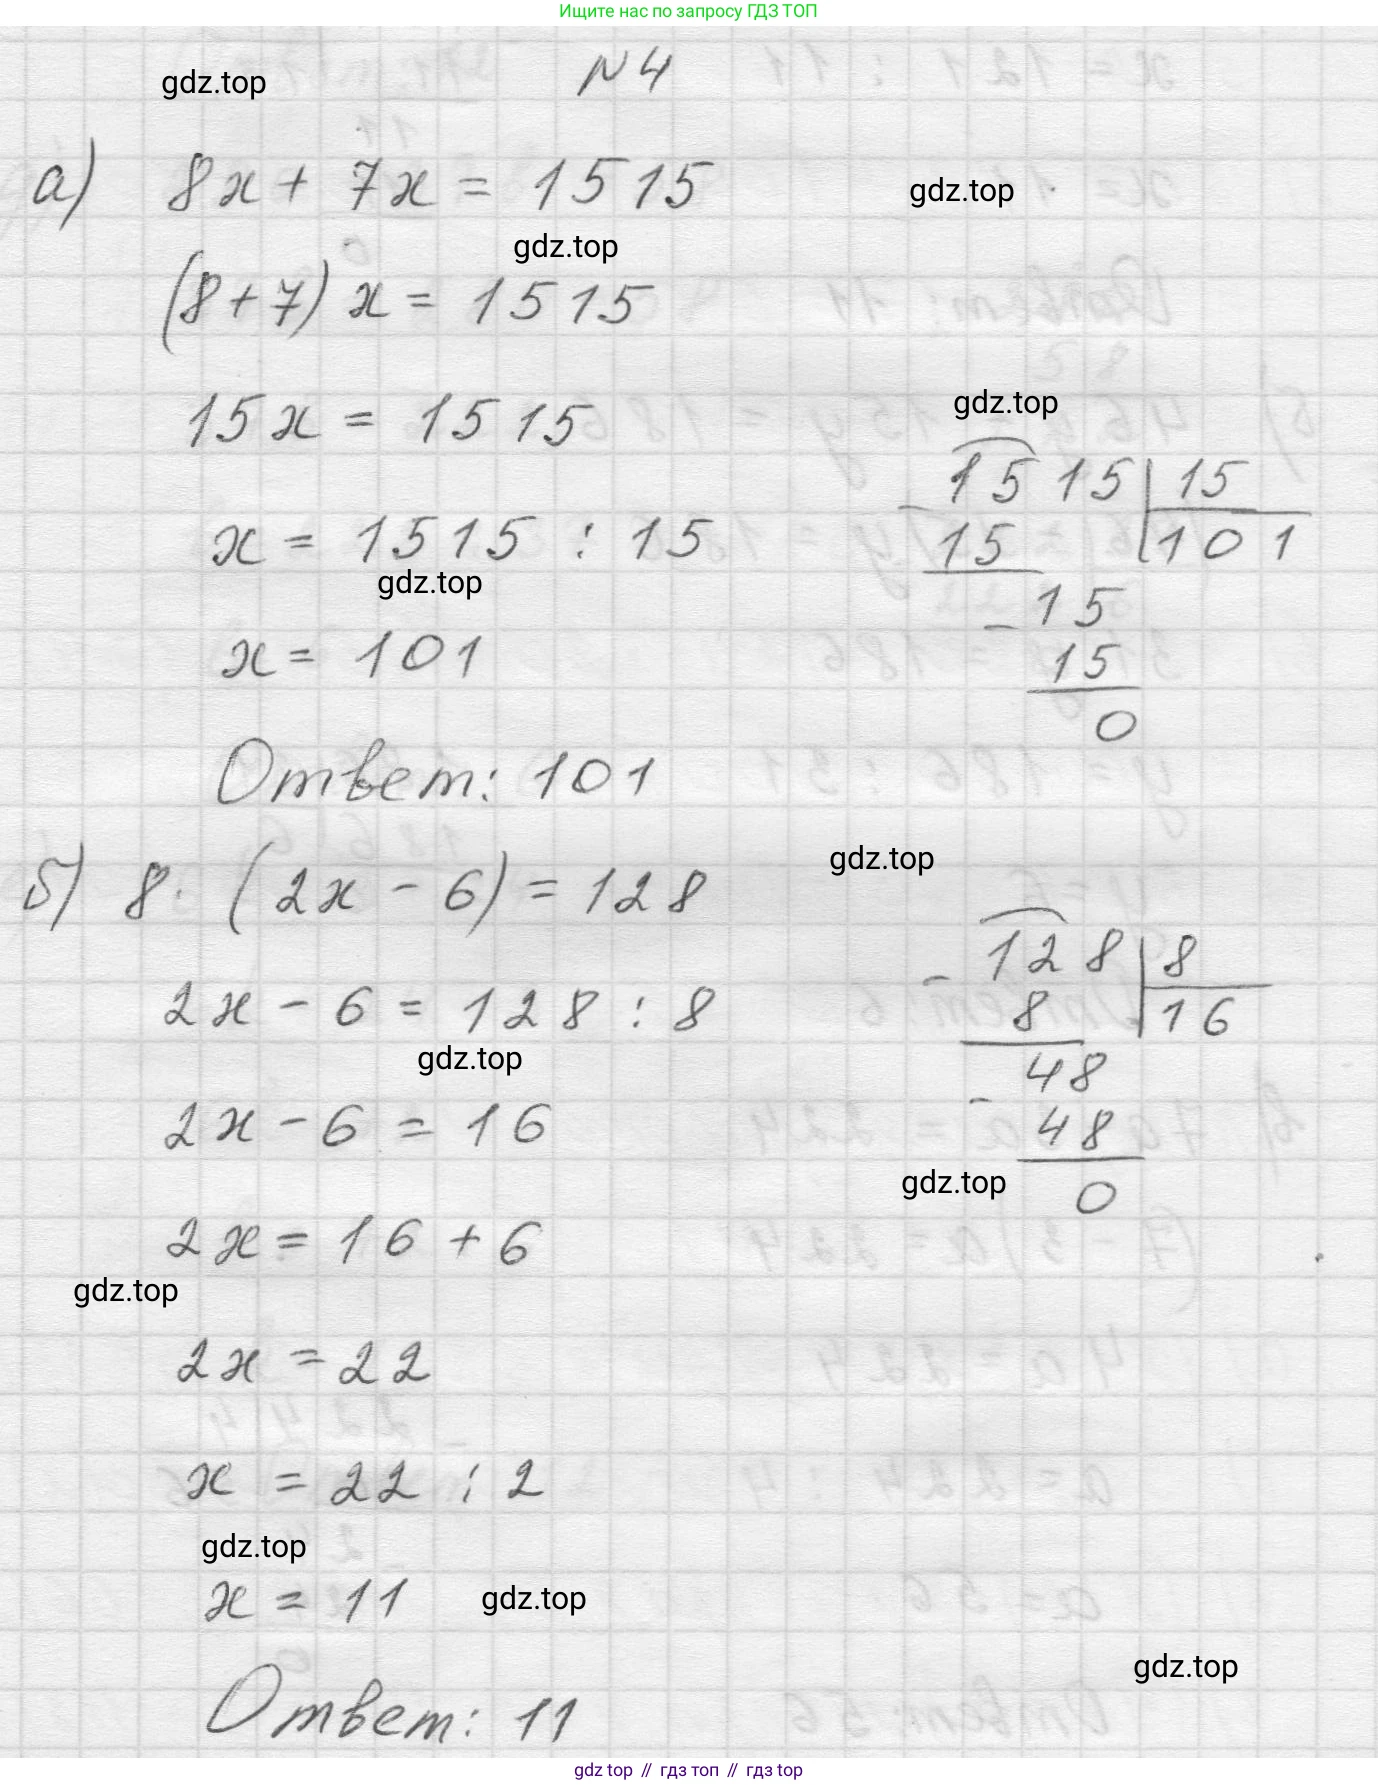 Ищите нас по запросу ГДЗ ТОП
N4
gdz.top
а) 8x + 7x = 1515
gdz.top
gdz.top
(8+7) x = 1515
15x = 1515
gdz.top
1515 | 15
x = 1515 : 15
- 15 | 101
gdz.top
- 15
x = 101
15
0
Ответ: 101
б) 8 · (2x - 6) = 128
gdz.top
- 128 | 8
2x - 6 = 128 : 8
8 | 16
gdz.top
- 48
2x - 6 = 16
48
gdz.top
0
2x = 16 + 6
gdz.top
2x = 22
x = 22 : 2
gdz.top
x = 11
gdz.top
gdz.top
Ответ: 11
gdz top // гдз топ // гдз top